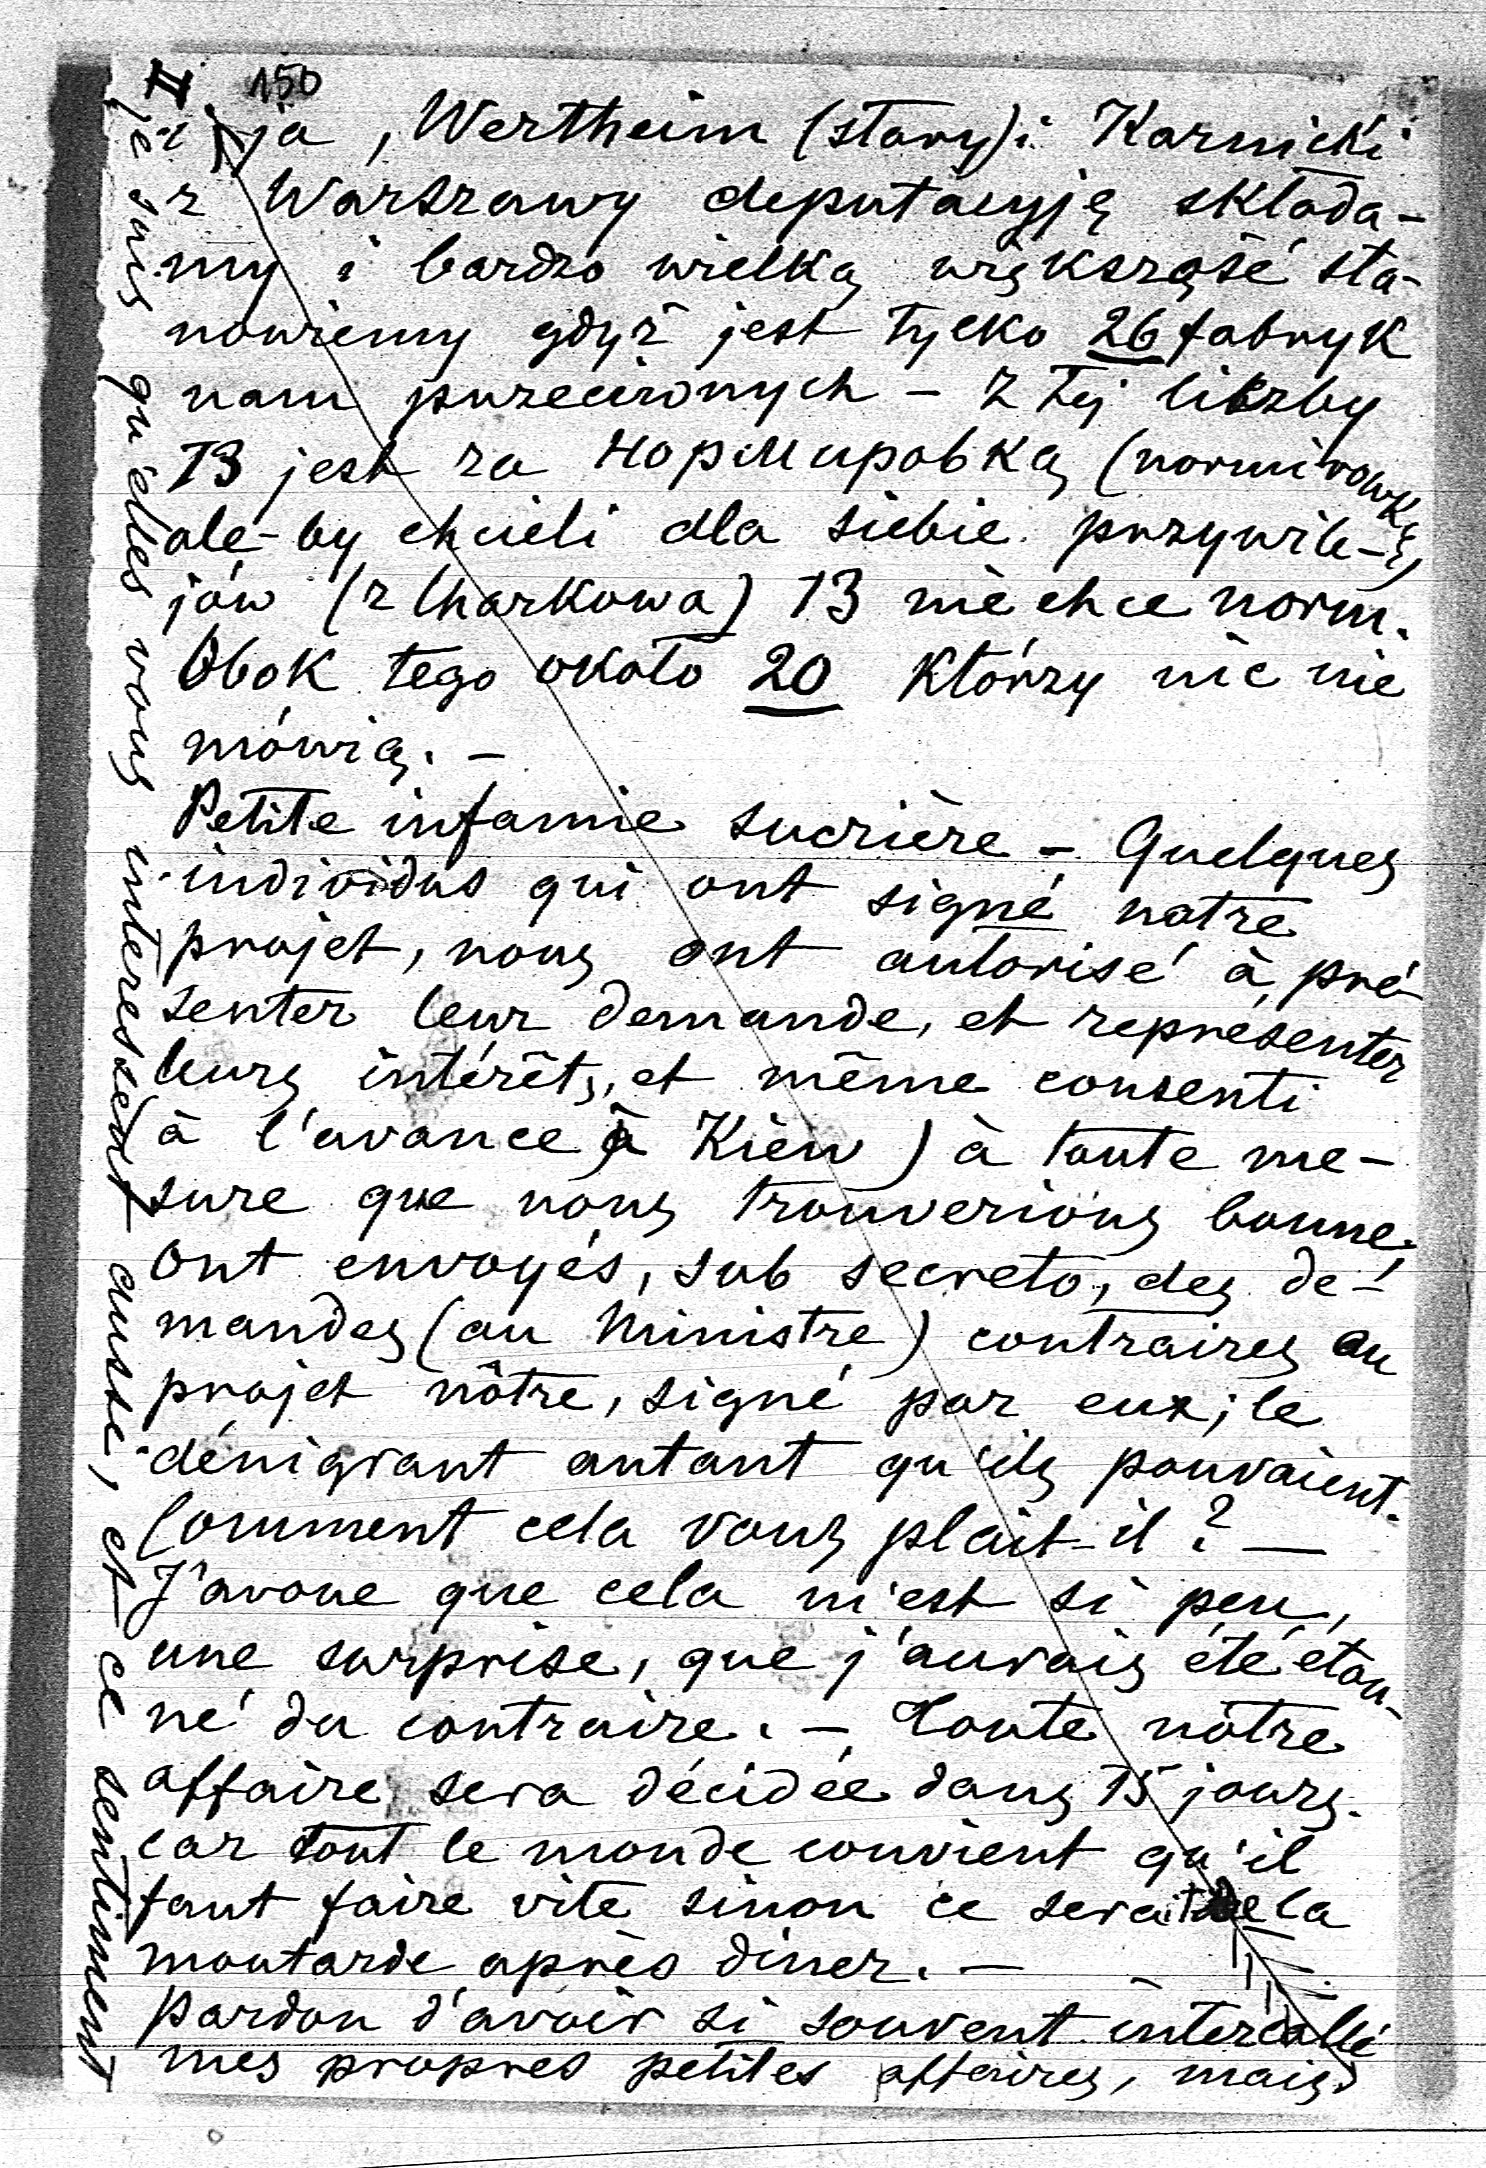 II 150
i ja, Wertheim (stary) i Karnicki
z Warszawy deputacyję składa-
my i bardzo wielką większość sta-
nowiemy gdyż jest tylko 26 fabryk
nam przeciwnych – z tej liczby
13 jest za нормировką (normirowką)
ale-by chcieli dla siebie przywile-
jów (z Charkowa) 13 nie chce norm.
Obok tego około 20 którzy nic nie
mówią. –
Petite infamie sucrière – Quelques
individus qui ont signé notre
projet, nous ont autorisé à pré-
senter leur demande, et représenter
leurs intérêts, et même consenti
à l'avance (à Kiew) à toute me-
sure que nous trouverions bonne,
ont envoyés, sub secreto, des de-
mandes (au Ministre) contraires au
projet nôtre, signé par eux; le
dénigrant autant qu'ils pouvaient.
Comment cela vous plait-il? —
J'avoue que cela m'est si peu,
une surprise, que j'aurais été éton-
né du contraire. – Toute nôtre
affaire sera décidée dans 15 jours.
car tout le monde convient qu'il
faut faire vite sinon ce serait de la
moutarde après diner. –
Pardon d'avoir si souvent intercallé
mes propres petites affaires, mais
je sais qu'elles vous interessent aussi, et ce sentiment